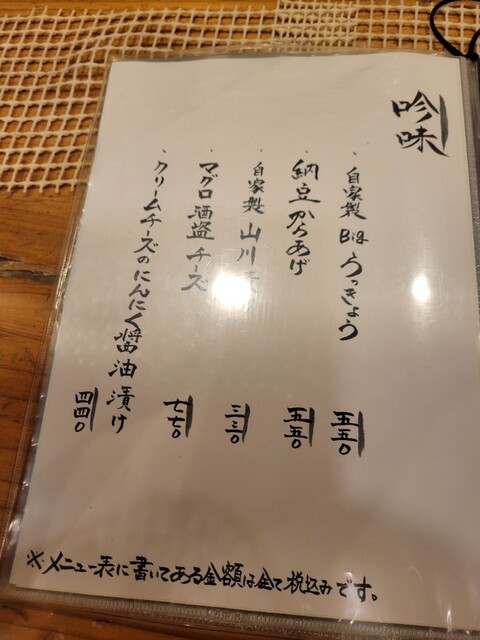 吟味
・自家製 Big らっきょう 五五〇
・納豆からあげ 五五〇
・自家製 山川 三三〇
・マグロ酒盗チーズ 七七〇
・クリームチーズのにんにく醤油漬け 四四〇
※メニュー表に書いてある金額は全て税込みです。